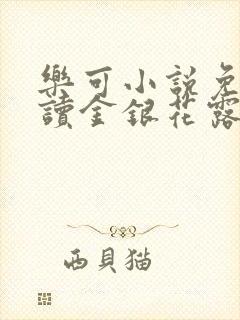 樂可小說免
讀金銀花露
西貝猫